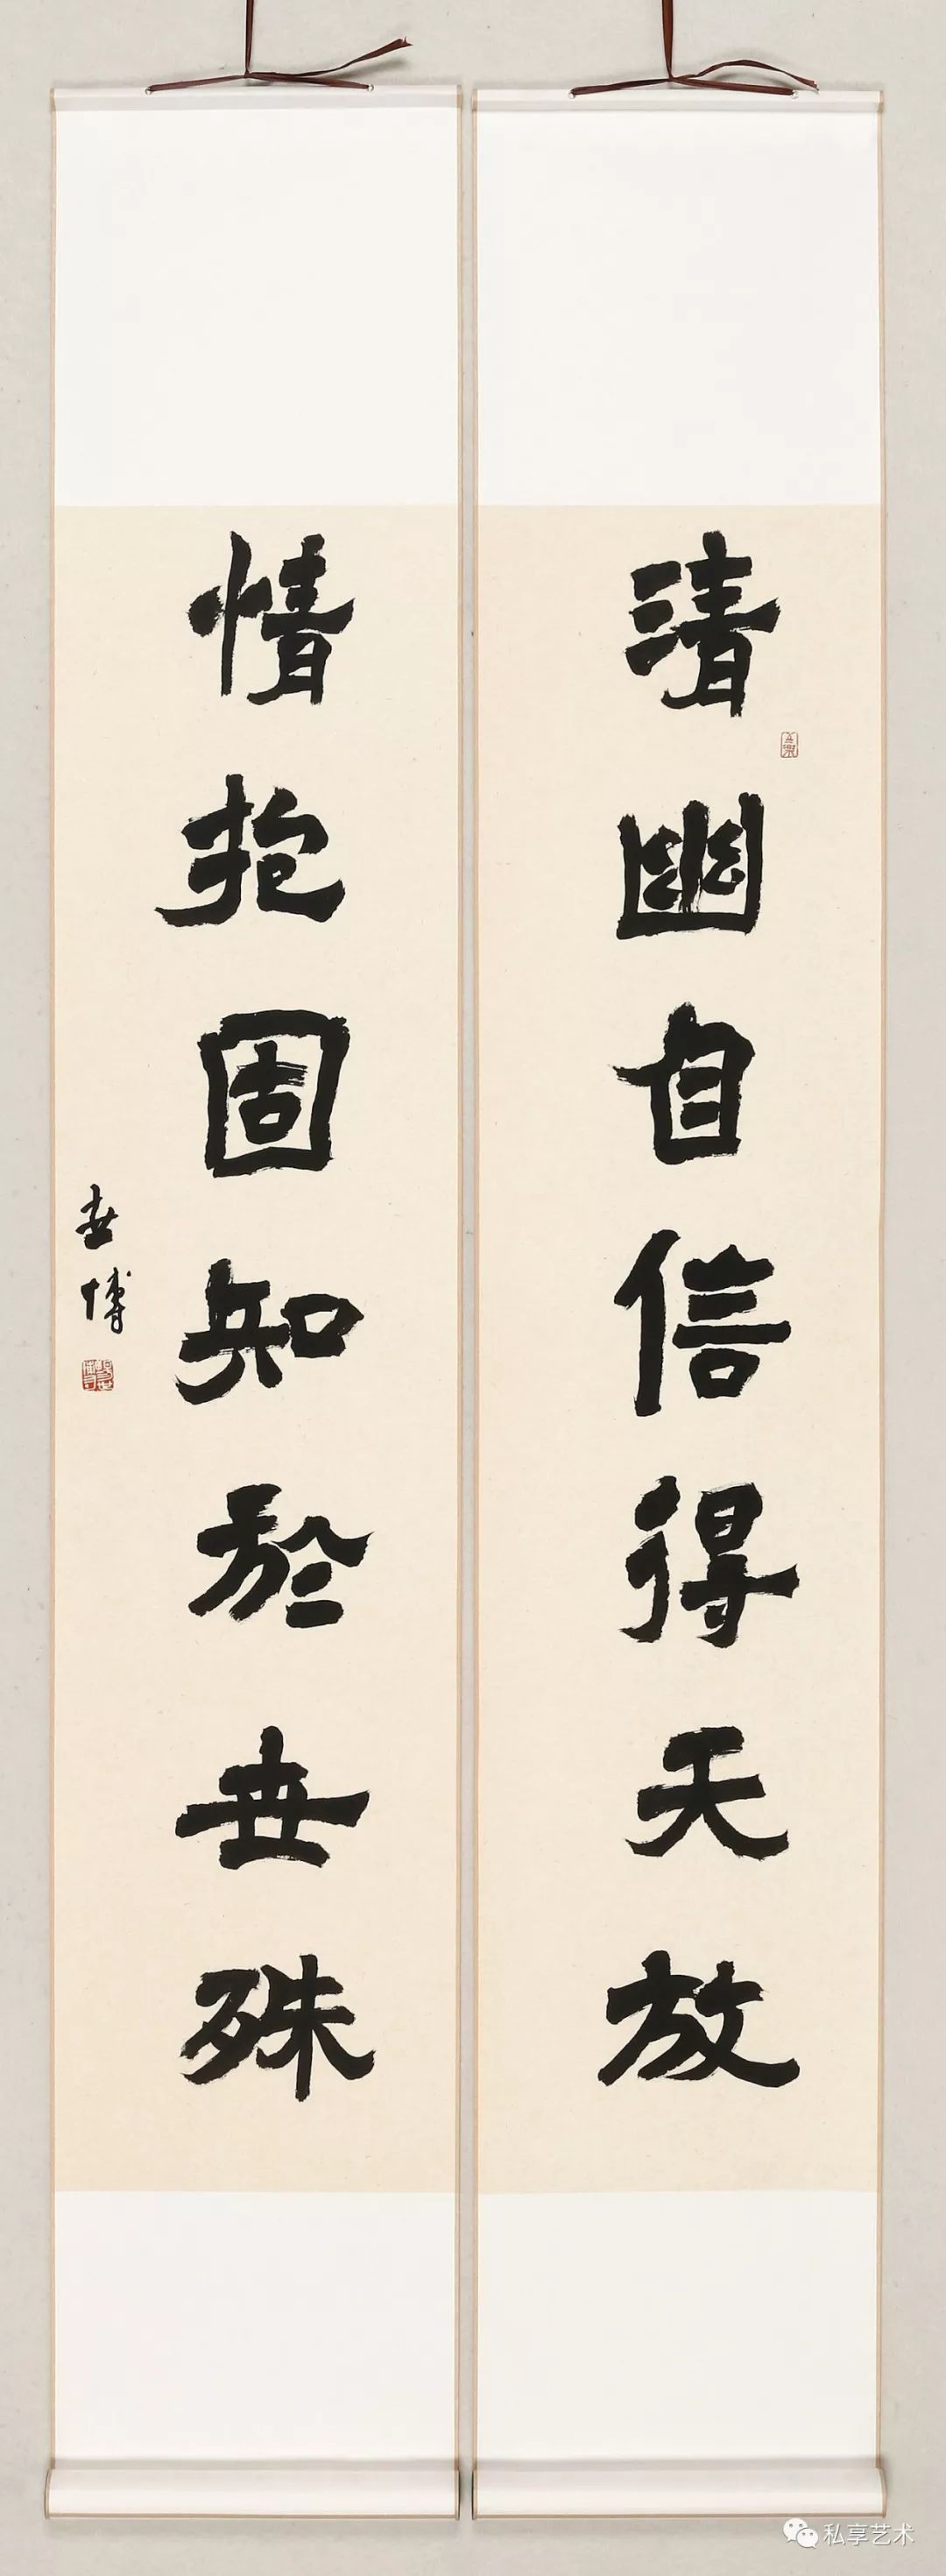 清幽自信得天放
情抱固知於世殊
世博
私享艺术